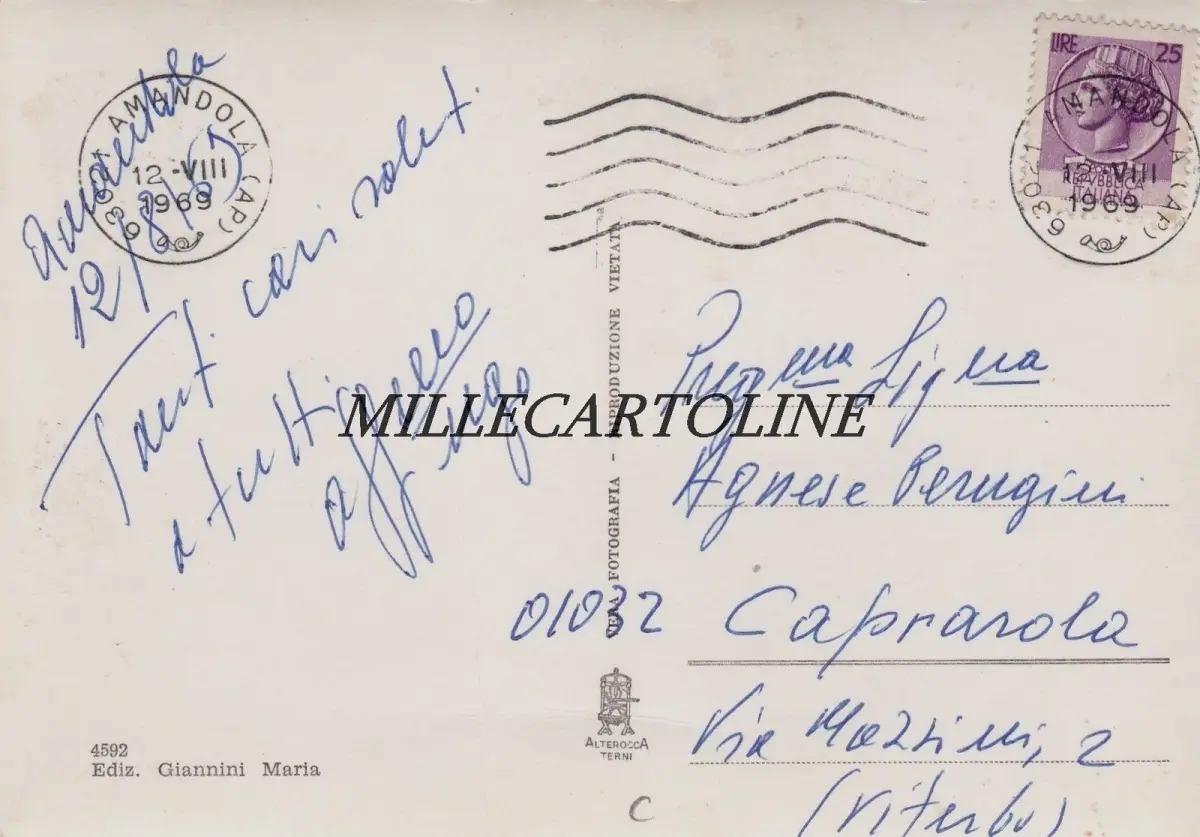 Amandola
12/8/69
Tanti cari saluti
a tutti
aff
Ugo
63021 AMANDOLA (AP)
12-VIII
1969
LIRE 25
REPUBBLICA
ITALIANA
63021 AMANDOLA (AP)
12-VIII
1969
VERA FOTOGRAFIA - RIPRODUZIONE VIETATA
MILLECARTOLINE
Sigra
Agnese Perugini
01032 Caprarola
Via Mazzini, 2
(Viterbo)
ALTEROCCA
TERNI
4592
Ediz. Giannini Maria
C